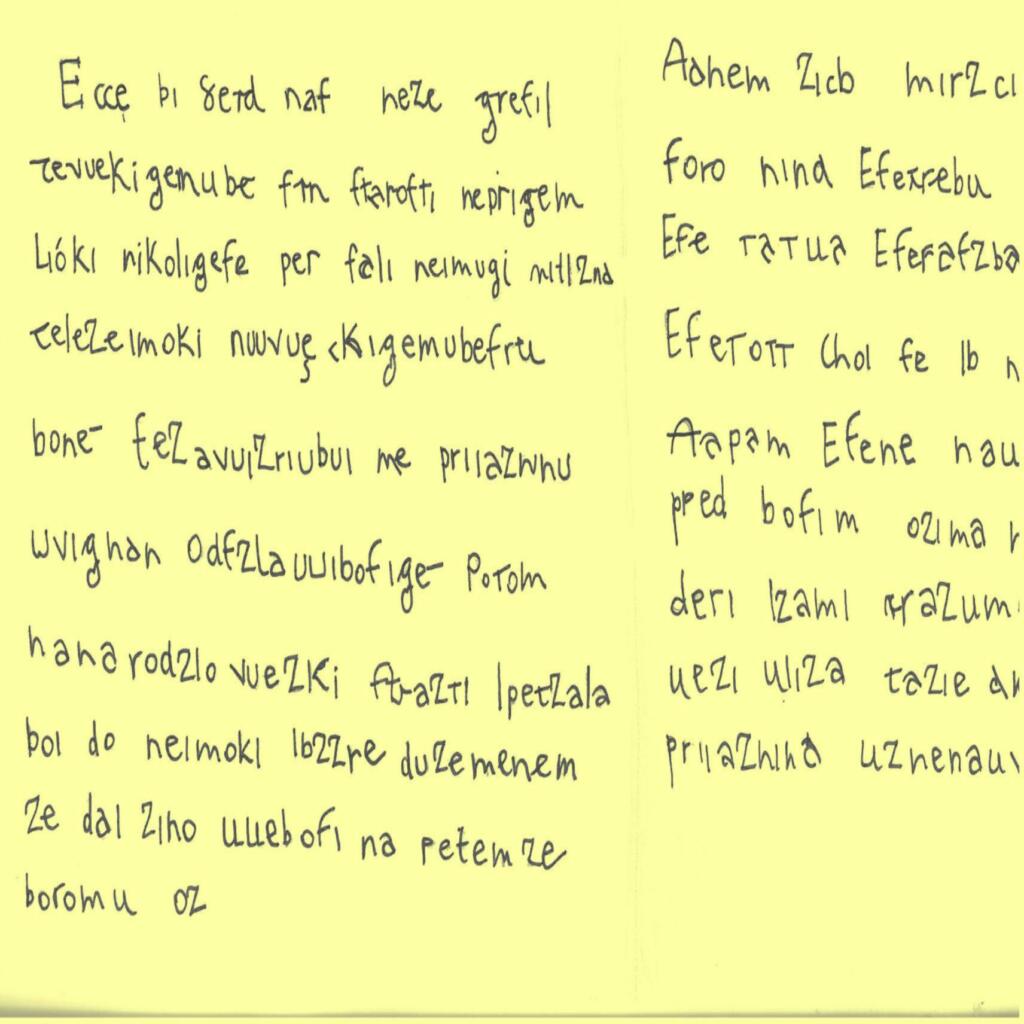 Eccę bi gerd naf neze grefil
tevuekigemube ftn ftarofti neprigem
Lióki nikoligefe per fali neimugi
telezeimoki nuvuę ckigemubefru
bone
me priiaznnu
uvignan Odfzlauuibofige Potom
nanarodzlo vuezki ftrazti Ipetzala
boi do neimoki Ibzzre duzemenem
ze dai ziho uuebofi na petem ze
boromu oz
Adhem zicb mirzci
foro nina
Efe tatua Eferafzba
Efetott Choi fe Ib n
Aapam Efene nau
pred bofim ozima
deri Izami
uezi uliza tazie
priiaznina uznenauv